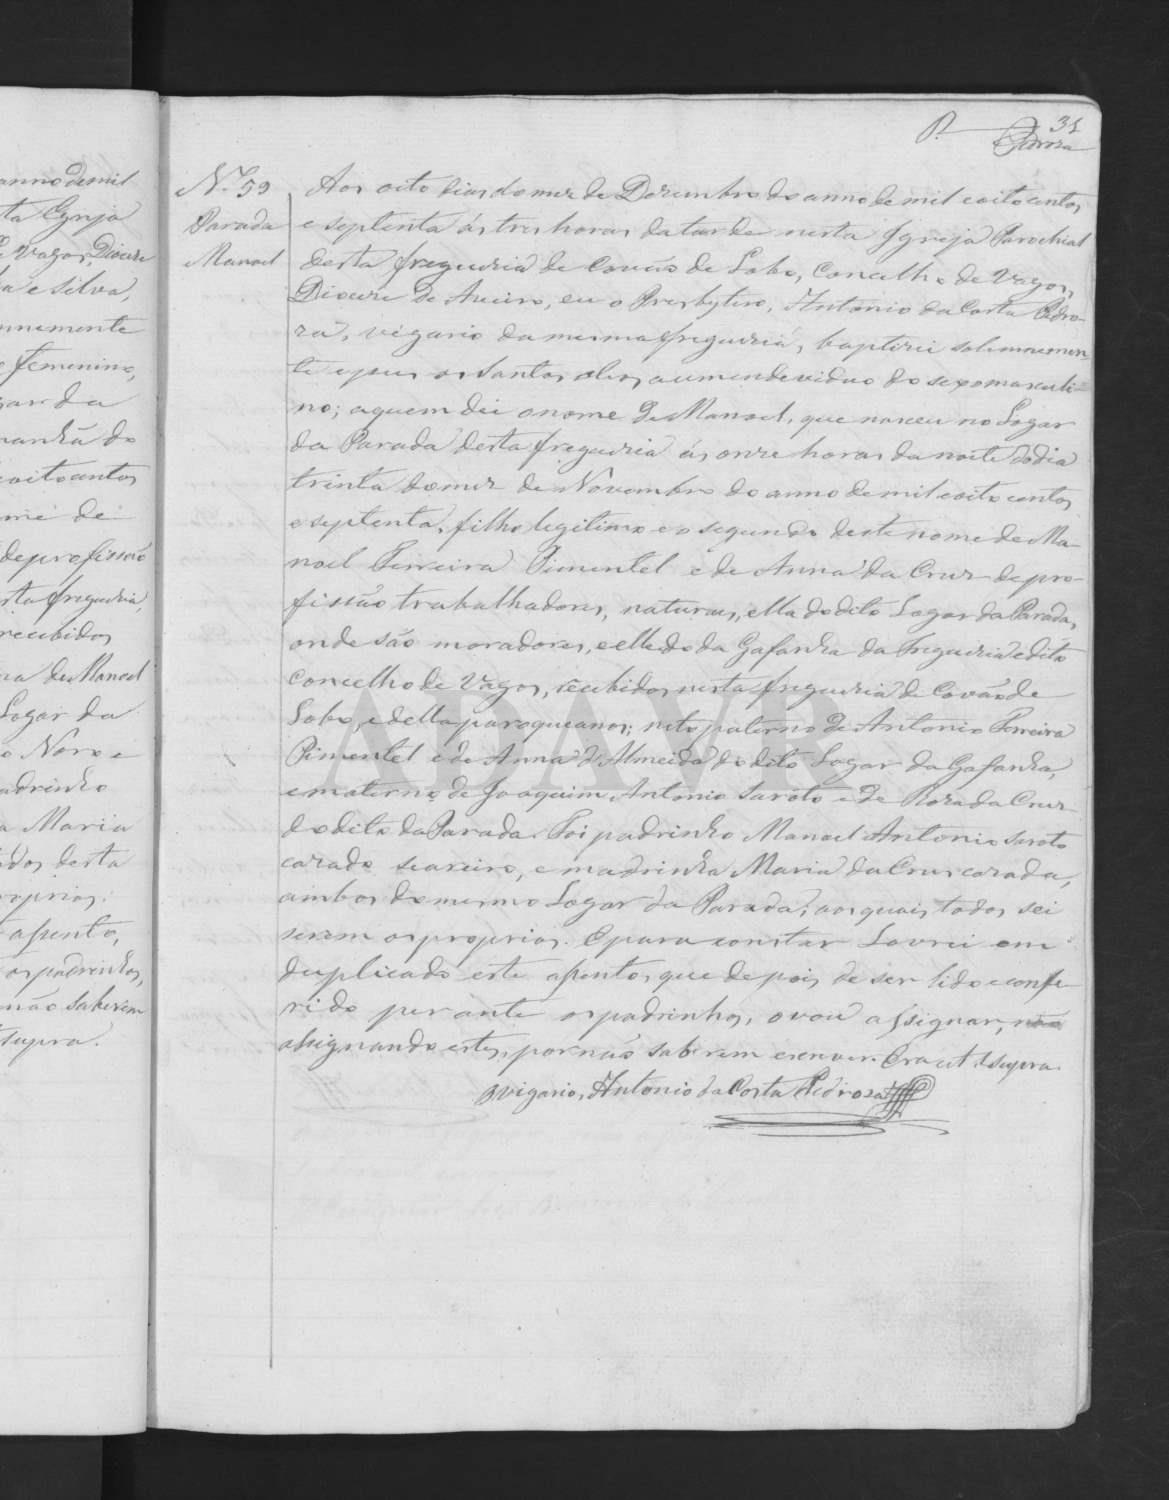 P.
31
Pedroza
N.º 59
Parada
Manoel
Aos oito dias do mez de Dezembro do anno de mil e oito centos
e septenta ás tres horas da tarde nesta Igreja Parochial
desta freguezia de Covão de Lobo, Concelho de Vagos,
Diocese de Aveiro, eu o Presbytero, Antonio da Costa Pedro-
za, vigario da mesma freguezia, baptizei solemnemen-
te e puz os Santos oleos a um individuo do sexo masculi-
no; a quem dei o nome de Manoel, que nasceu no Logar
da Parada desta freguezia ás onze horas da noite do dia
trinta do mez de Novembro do anno de mil e oito centos
e septenta, filho legitimo e o segundo deste nome de Ma-
noel Ferreira Pimentel e de Anna da Cruz de pro-
fissão trabalhadores, naturaes, ella do dito Logar da Parada,
onde são moradores, e elle do da Gafanha da freguezia e dito
Concelho de Vagos, recebidos nesta freguezia de Covão de
Lobo, e della paroquianos; neto paterno de Antonio Ferreira
Pimentel e de Anna d'Almeida do dito Logar da Gafanha,
e materno de Joaquim Antonio Saroto e de Roza da Cruz
do dito da Parada. Foi padrinho Manoel Antonio Saroto
cazado seareiro, e madrinha Maria da Cruz cazada,
ambos do mesmo Logar da Parada; aos quais todos sei
serem os proprios. E para constar Lavrei em
duplicado este assento, que depois de ser lido e confe-
rido perante os padrinhos, o vou assignar, não
assignando estes, por não saberem escrever. Era ut supra.
O vigario, Antonio da Costa Pedroza
ADAVR
anno de mil
ta Igreja
e Vagos, Diocese
a e Silva,
nnemente
femenino,
gar da
manhã do
oito centos
me de
de profissão
sta freguezia,
recebidos
na de Manoel
Logar da
o Novo e
adrinho
a Maria
ados desta
proprios.
assento,
os padrinhos,
não saberem
supra.